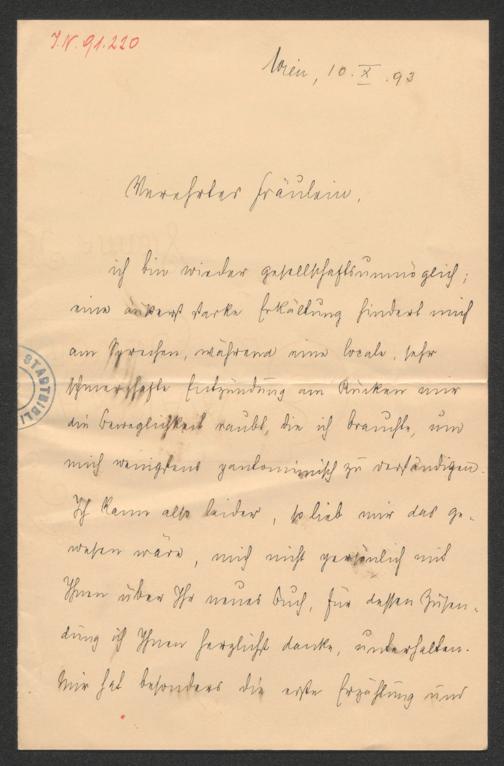 J.N. 91.220
Wien, 10. X. 93
Verehrtes Fräulein,
ich bin wieder gesellschaftsunmöglich;
eine äußerst starke Erkältung hindert mich
am Sprechen, während eine locale, sehr
schmerzhafte Entzündung am Rücken mir
die Beweglichkeit raubt, die ich brauchte, um
mich wenigstens pantomimisch zu verständigen.
Ich kann also leider, so lieb mir das ge-
wesen wäre, mich nicht persönlich mit
Ihnen über Ihr neues Buch, für dessen Zusen-
dung ich Ihnen herzlichst danke, unterhalten.
Mir hat besonders die erste Erzählung und
STADTBIBLI